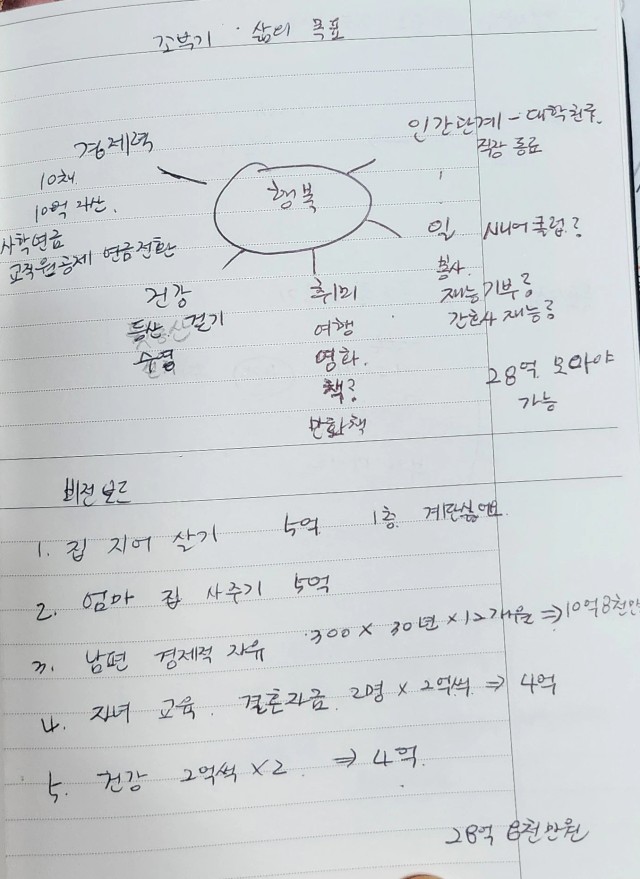 꼬부기 · 삶의 목표
경제력
10채
10억 자산.
사학연금
교직원공제 연금전환
행복
인간단계 - 대학친구.
직장 동료
일 시니어클럽?
봉사.
재능기부?
간호사 재능?
건강
등산 걷기
수영
취미
여행
영화.
책?
만화책
28억 모아야
가능
비전보드
1. 집 지어 살기 5억 1층. 계단싫어요.
2. 엄마 집 사주기 5억
3. 남편 경제적 자유 300 x 30년 x 12개월 ⇒ 10억 8천만
4. 자녀 교육. 결혼자금. 2명 x 2억씩 ⇒ 4억
5. 건강 2억씩 x 2. ⇒ 4억.
28억 8천만원